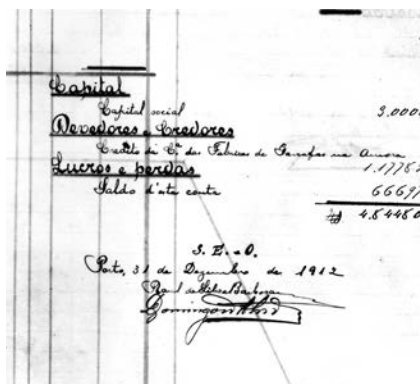 Capital
Capital social 3.000
Devedores e Credores
Credito da C.ª das Fabricas de Garrafas na Amora
1.1778
Lucros e perdas
Saldo d'esta conta 6669
4.84480
S. E. ou O.
Porto, 31 de Dezembro de 1912
Raul da Silva Barbosa